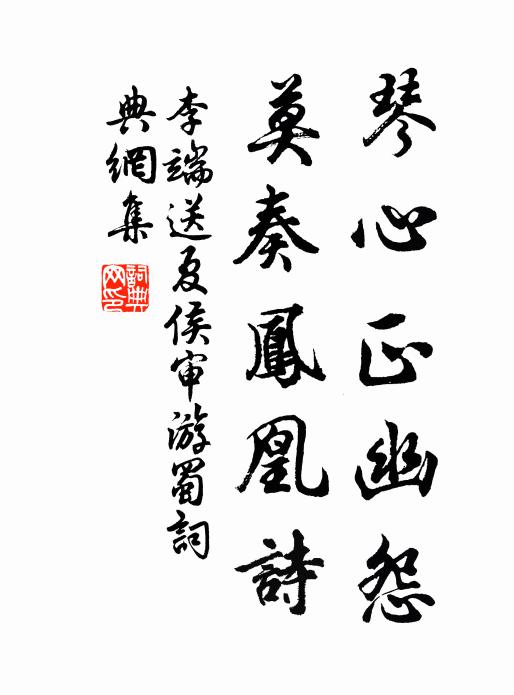 琴心正幽怨
莫奏鳳凰詩
李端送夏侯审游蜀詞
典網集
詞典網印